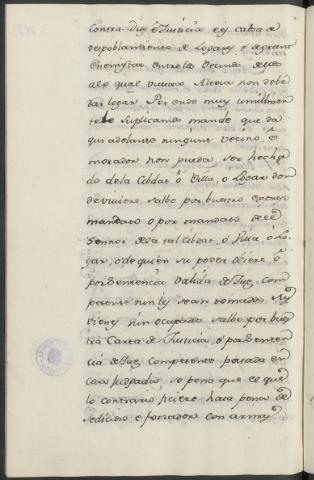 Contra Dios è Justicia è es causa de
despoblamiento de Logares, è de grand
enemistad entre los vecinos de ellos
alo qual vuestra Alteza non debe
dar logar. Por ende muy umillmen
te le suplicamos mande que da
qui adelante ningunt vecino è
morador non pueda ser hecha
do dela Cibdat ò Villa, ò Logar don
de viviere salbo por buestro espreso
mandato ò por mandato de el
Señor dela tal Cibdat, ò Villa, ò Lo
gar, ò de quien su poder obiere ò
por sentencia valida de Juez com
petente nin les sean tomados sus
vienes nin ocupados salbo por bues
tra Carta de Justicia ò por senten
cia de Juez competente pasada en
cosa juzgada, so pena que el que
lo contrario ficiere haia pena de
sedicioso è forzador con armas